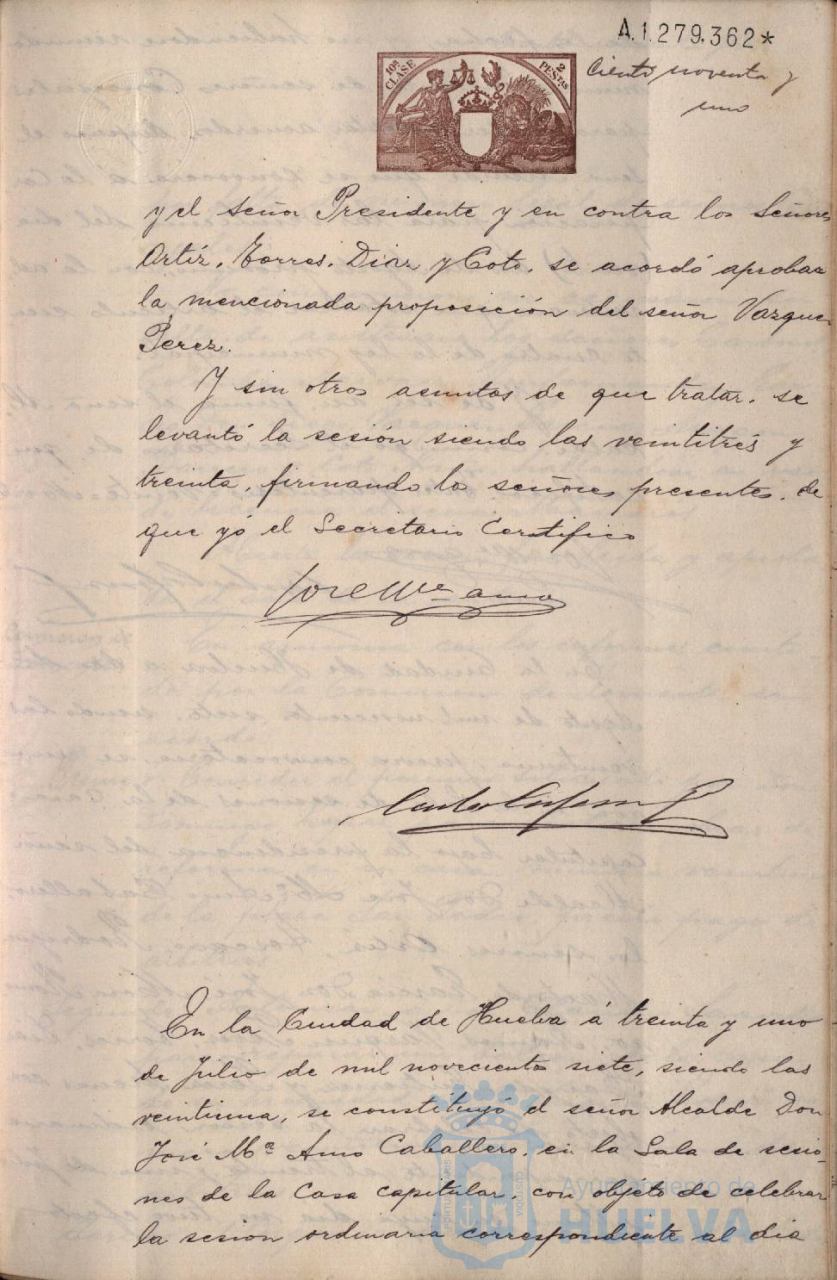 A.1.279.362*
10ª CLASE
2 PESTAS
Ciento noventa y
uno
y el señor Presidente y en contra los Señores
Ortíz, Torres, Diaz y Coto, se acordó aprobar
la mencionada proposición del señor Vazquez
Perez.
Y sin otros asuntos de que tratar, se
levantó la sesión siendo las veintitrés y
treinta, firmando los señores presentes, de
que yó el Secretario Certifico
José Mª amo
En la Ciudad de Huelva á treinta y uno
de Julio de mil novecientos siete, siendo las
veintiuna, se constituyó el señor Alcalde Don
José Mª Amo Caballero, en la Sala de sesio-
nes de la Casa capitular, con objeto de celebrar
la sesion ordinaria correspondiente al dia
Ayuntamiento de
HUELVA